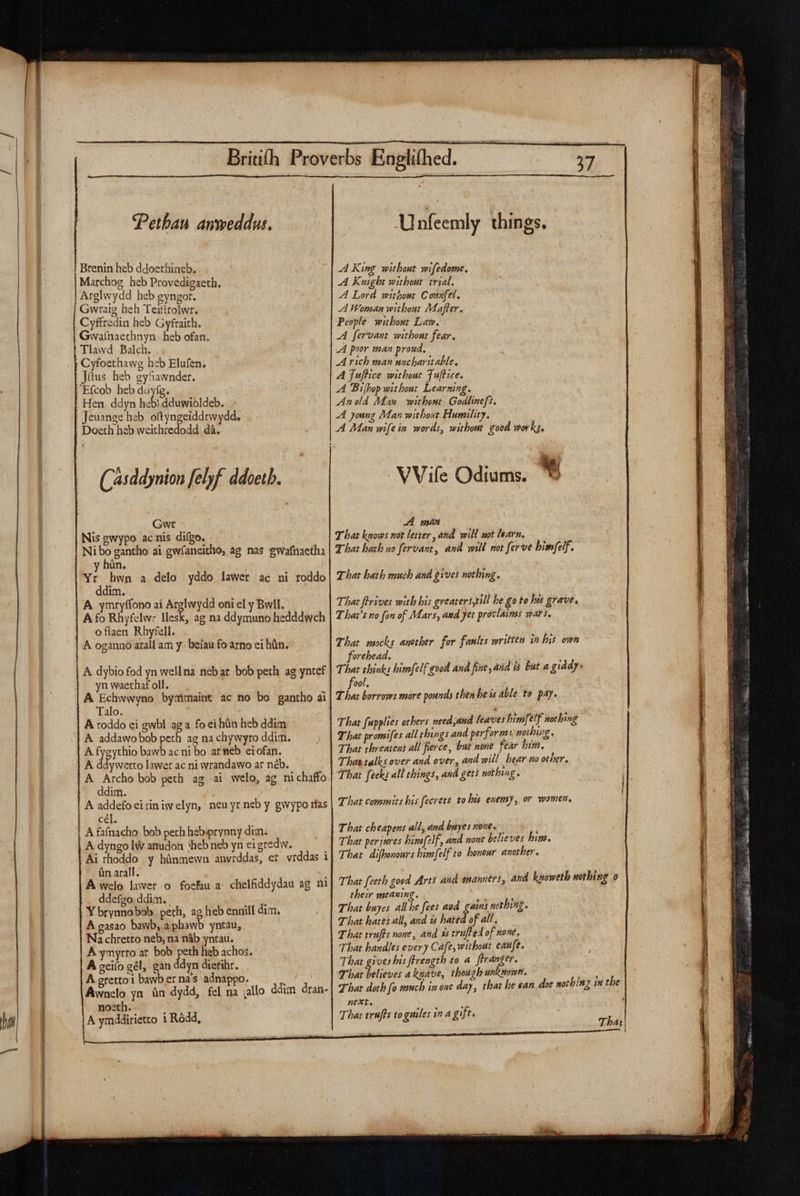 Britiſh Proverbs Engliſhed.
37
Pethau anweddus.
Brenin heb ddoethineb.
Marchog heb Provedigaeth.
Arglwydd heb gyngor.
Gwraig heb Teiſtrolwr.
Cyffredin heb Gyfraith.
Gwaſnaethnyn heb ofan.
Tlawd Balch.
Cyfoethawg heb Eluſen.
Jſtus heb gyfiawnder.
Eſcob heb dduyſg.
Hen ddyn heb dduwioldeb.
Jeuange heb oſtyngeiddrwydd.
Doeth heb weithredodd dâ.
Câsddynion ſelyf ddoeth.
Gwr
Nis gwypo ac nis diſgo.
Ni bo gantho ai gwſaneitho, ag nas gwaſnaetha
y hûn.
Yr hwn a delo yddo lawer ac ni roddo
ddim.
A ymryſſono ai Arglwydd oni el y Bwll.
A fo Rhyfelwr lleſk, ag na ddymuno hedddwch
o flaen Rhyfell.
A oganno arall am y beiau fo arno ei hûn.
A dybio fod yn well na neb ar bob peth ag yntef
yn waethaf oll.
A Echwwyno bymmaint ac no bo gantho ai
Talo.
A roddo ei gwbl ag a fo ei hûn heb ddim
A addawo bob peth ag na chywyro ddim.
A fygythio bawb ac ni bo ar neb ei ofan.
A ddywetto lawer ac ni wrandawo ar nêb.
A Archo bob peth ag ai welo, ag ni chaffo
ddim.
A addefo ei rin iw elyn, neu yr neb y gwypo rſas
cêl.
A fafnacho bob peth heb prynny dim.
A dyngo lŵ anudon heb neb yn ei gredw.
Ai rhoddo y hûnmewn anvrddas, er vrddas i
ûn arall.
A welo lawer o foeſau a chelfiddydau ag ni
ddeſgo ddim.
Y brynno bob peth, ag heb ennill dim.
A gasao bawb, a phawb yntau,
Na chretto neb, na nâb yntau.
A ymyrro ar bob peth heb achos.
A geiſo gêl, gan ddyn dieithr.
A gretto i bawb er na's adnappo.
Awnelo yn ûn dydd, fel na allo ddim dran-
noeth.
A ymddirietto i Rôdd,
Unſeemly things.
A King without wiſedome.
A Knight without trial.
A Lord without Counſel.
A Woman without Maſter.
People without Law.
A ſervant without fear.
A poor man proud.
A rich man uncharitable.
A Juſtice without Juſtice.
A Biſhop without Learning.
An old Man without Godlineſs.
A young Man without Humility.
A Man wiſe in words, without good works.
VViſe Odiums.
A man
That knows not letter, and will not learn.
That hath no ſervant, and will not ſerve himſelf.
That hath much and gives nothing.
That ſtrives with his greaters, till he go to his grave.
That's no ſon of Mars, and yet proclaims wars.
That mocks another for faults written in his own
forehead.
That thinks himſelf good and fine, and is but a giddy-
fool.
That borrows more pounds then he is able to pay.
That ſupplies others need, and leaves himſelf nothing
That promiſes all things and performs nothing.
That threatens all fierce, but none fear him.
That talks over and over, and will hear no other.
That ſeeks all things, and gets nothing.
That commits his ſecrets to his enemy, or women.
That cheapens all, and buyes none.
That perjures himſelf, and none believes him.
That diſhonours himſelf to honour another.
That ſeeth good Arts and manners, and knoweth nothing o
their meaning.
That buyes all he ſees and gains nothing.
That hates all, and is hated of all,
That truſts none, and is truſted of none.
That handles every Caſe, without cauſe.
That gives his ſtrength to a ſtranger.
That believes a knave, though unknown.
That doth ſo much in one day, that he can doe nothing in the
next.
That truſts to guiles in a gift.
That